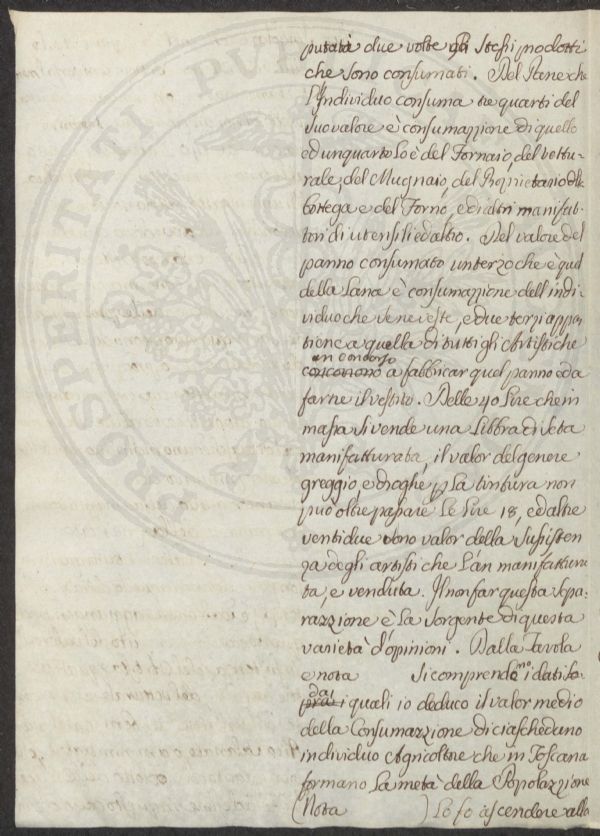 putata due volte gli stessi prodotti
che sono consumati. Nel Pane che
l'Individuo consuma tre quarti del
suo valore è consumazzione di quello
ed un quarto lo è del Fornaio, del vettu-
rale, del Mugnaio, del Proprietario della
bottega e del Forno, e di altri manifat-
tori di utensili ed altro. Nel valore del
panno consumato un terzo che è quel
della Lana è consumazzione dell'indi-
viduo che se ne veste, e due terzi appar-
tiene a quella di tutti gli Artisti che
an concorso
concorrono a fabbricar quel panno ed a
farne il vestito. Delle 40 Lire che in
massa si vende una Libbra di seta
manifatturata, il valor del genere
greggio e droghe p la tintura non
può oltrepassare le Lire 18, ed altre
ventidue sono valor della sussisten
za degli artisti che l'àn manifattura
ta, e venduta. Il non far questa sepa-
razzione è la sorgente di questa
varietà d'opinioni. Dalla Tavola
e nota si comprendono i dati so-
da
pra i quali io deduco il valor medio
della Consumazzione di ciascheduno
individuo Agricoltore che in Toscana
formano la metà della Popolazzione
(Nota ) Lo fo ascendere alla
PROSPERITATI PUBLICAE